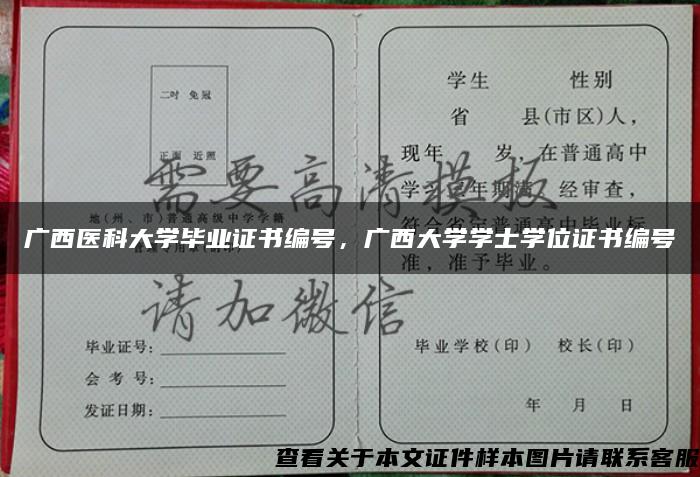 二吋 免冠
正面 近照
地(州、市)普通高级中学学籍
毕业证号:
会考号:
发证日期:
学生 性别
省 县(市区)人，
现年 岁，在普通高中
学习 年期满，经审查，
符合省定普通高中毕业标
准，准予毕业。
毕业学校(印) 校长(印)
年 月 日
需要高清模板
请加微信
广西医科大学毕业证书编号，广西大学学士学位证书编号
查看关于本文证件样本图片请联系客服